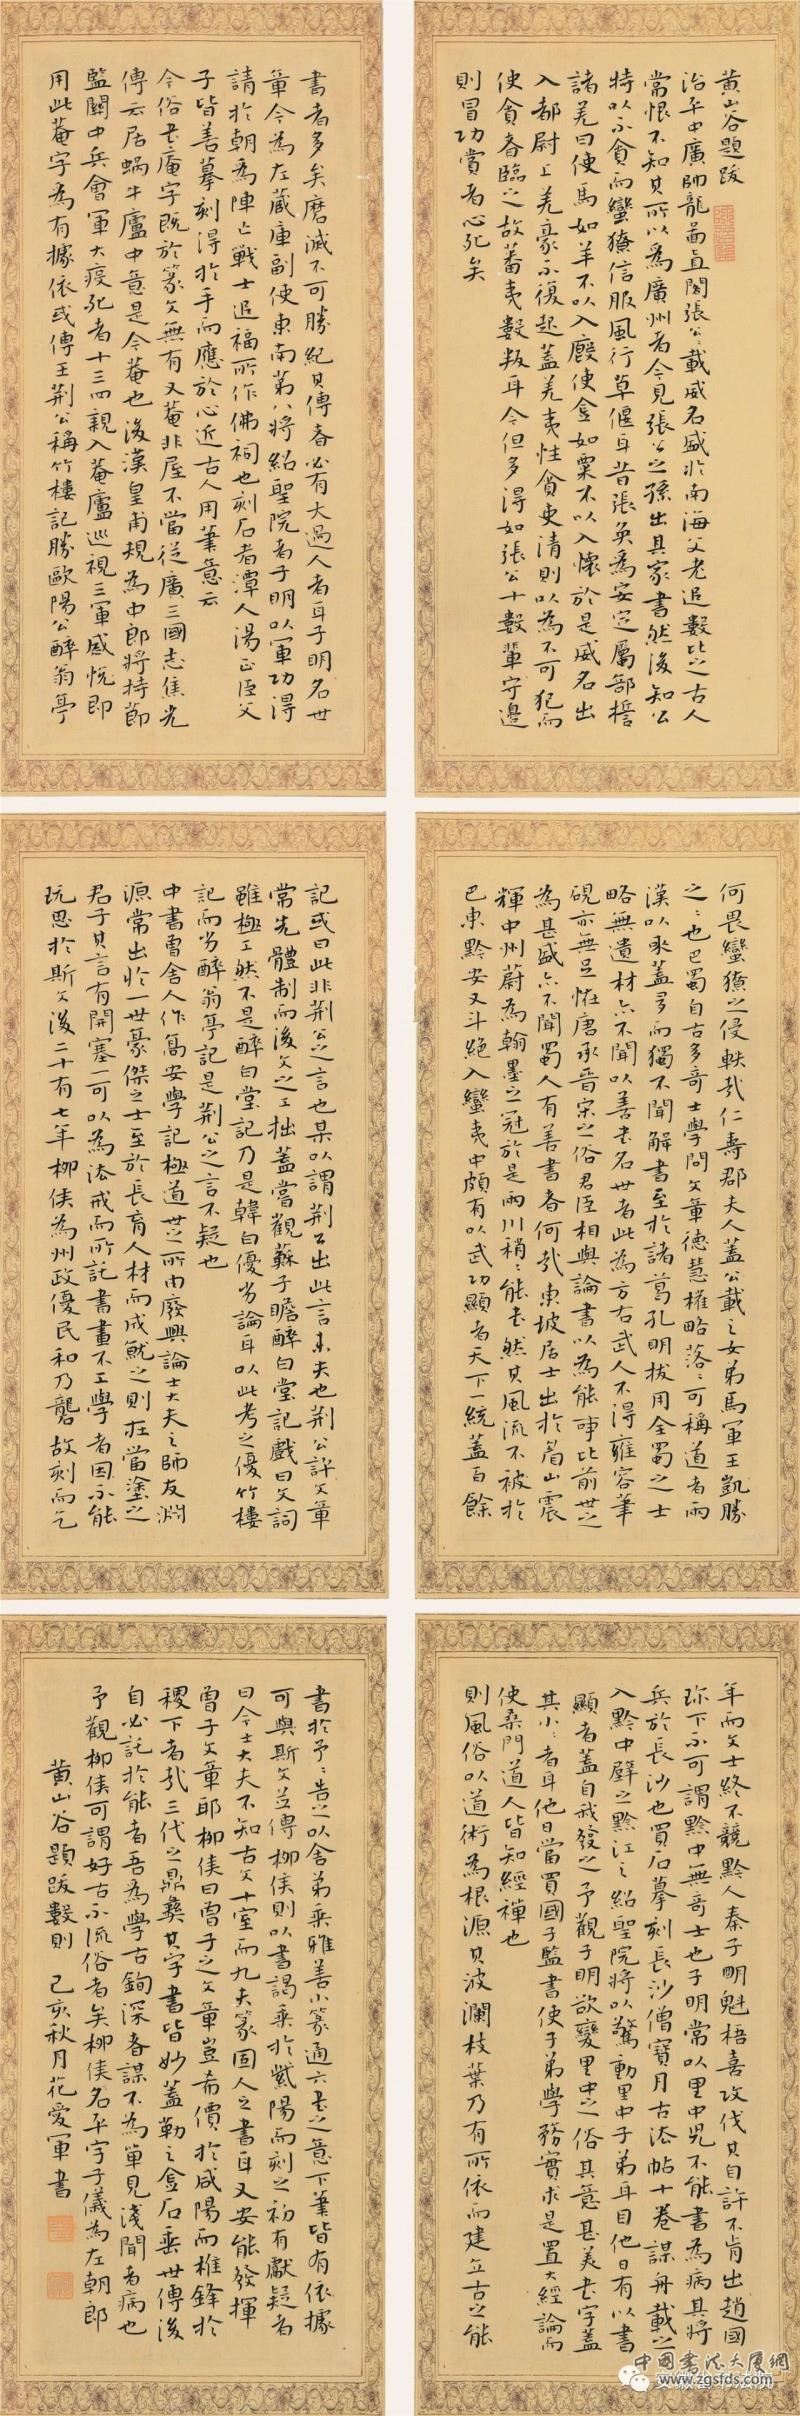 黄山谷題跋
治平中廣帥龍啚直閣張公載威名盛於南海父老追數比之古人
常恨不知其所以為廣州者今見張公之孫出其家書然後知公
特以不貪而蠻獠信服風行草偃耳昔張奐為安定屬部誓
諸羌曰使馬如羊不以入廄使金如粟不以入懷於是威名出
入都尉上羌豪不復起蓋羌夷性貪吏清則以為不可犯而
使貪者臨之故蕃夷數叛耳今但多得如張公十數輩守邊
則冒功賞者心死矣
何畏蠻獠之侵軼哉仁壽郡夫人蓋公載之女弟馬軍王凱勝
之〻也巴蜀自古多奇士學問文章德慧權略落〻可稱道者兩
漢以來蓋多而獨不聞解書至於諸葛孔明拔用全蜀之士
略無遺材亦不聞以善書名世者此為方右武人不得雍容筆
硯亦無足怪唐承晉宋之俗君臣相與論書以為能事比前世之
為甚盛亦不聞蜀人有善書者何哉東坡居士出於眉山震
輝中州蔚為翰墨之冠於是兩川稍〻能書然其風流不被於
巴東黔安又斗絕入蠻夷中頗有以武功顯者天下一統蓋百餘
年而文士終不競黔人秦子明魁梧喜攻伐其自許不肯出趙國
珎下不可謂黔中無奇士也子明常以里中兒不能書為病其將
兵於長沙也買石摹刻長沙僧寶月古法帖十卷謀舟載之
入黔中壁之黔江之紹聖院將以驚動里中子弟耳目他日有以書
顯者蓋自我發之予觀子明欲變里中之俗其意甚美書字蓋
其小〻者耳他日當買國子監書使子弟學務實求是置大經論而
使桑門道人皆知經禪也
則風俗以道術為根源其波瀾枝葉乃有所依而建立古之能
書者多矣磨滅不可勝紀其傳者必有大過人者耳子明名世
章今為左藏庫副使東南第八將紹聖院者子明以軍功得
請於朝為陣亡戰士追福所作佛祠也刻石者潭人湯正臣父
子皆善摹刻得於手而應於心近古人用筆意云
今俗書庵字既於篆文無有又菴非屋不當從廣三國志焦光
傳云居蝸牛廬中意是今菴也後漢皇甫規為中郎將持節
監關中兵會軍大疫死者十三四親入菴廬巡視三軍感悅即
用此菴字為有據依或傳王荊公稱竹樓記勝歐陽公醉翁亭
記或曰此非荊公之言也某以謂荊公出此言未失也荊公評文章
常先體制而後文之工拙蓋嘗觀蘇子瞻醉白堂記戲曰文詞
雖極工然不是醉白堂記乃是韓白優劣論耳以此考之優竹樓
記而劣醉翁亭記是荊公之言不疑也
中書曾舍人作高安學記極道世之所由廢興論士大夫之師友淵
源常出於一世豪傑之士至於長育人材而成就之則在當塗之
君子其言有開塞一可以為法戒而所託書畫不工學者因不能
玩思於斯文後二十有七年柳侯為州政優民和乃礱故刻而乞
書於予〻告之以舍弟乘雅善小篆通六書之意下筆皆有依據
可與斯文並傳柳侯則以書謁乘於紫陽而刻之初有獻疑者
曰今士大夫不知古文十室而九夫篆固人之書耳又安能發揮
曾子文章耶柳侯曰曾子之文章豈希價於咸陽而椎鋒於
稷下者哉三代之鼎彝其字書皆妙蓋勒之金石垂世傳後
自必託於能者吾為學古鉤深者謀不為單見淺聞者病也
予觀柳侯可謂好古不流俗者矣柳侯名平字子儀為左朝郎
黄山谷題跋數則 己亥秋月花愛軍書
中国書法大厦網
www.zgsfds.com